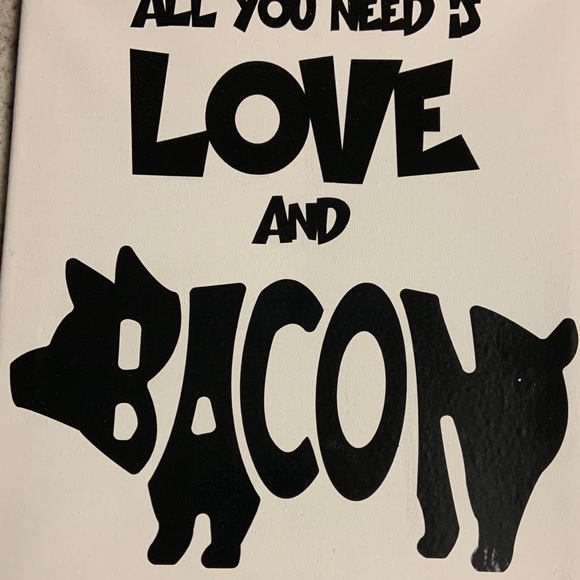 ALL YOU NEED IS
LOVE
AND
BACON